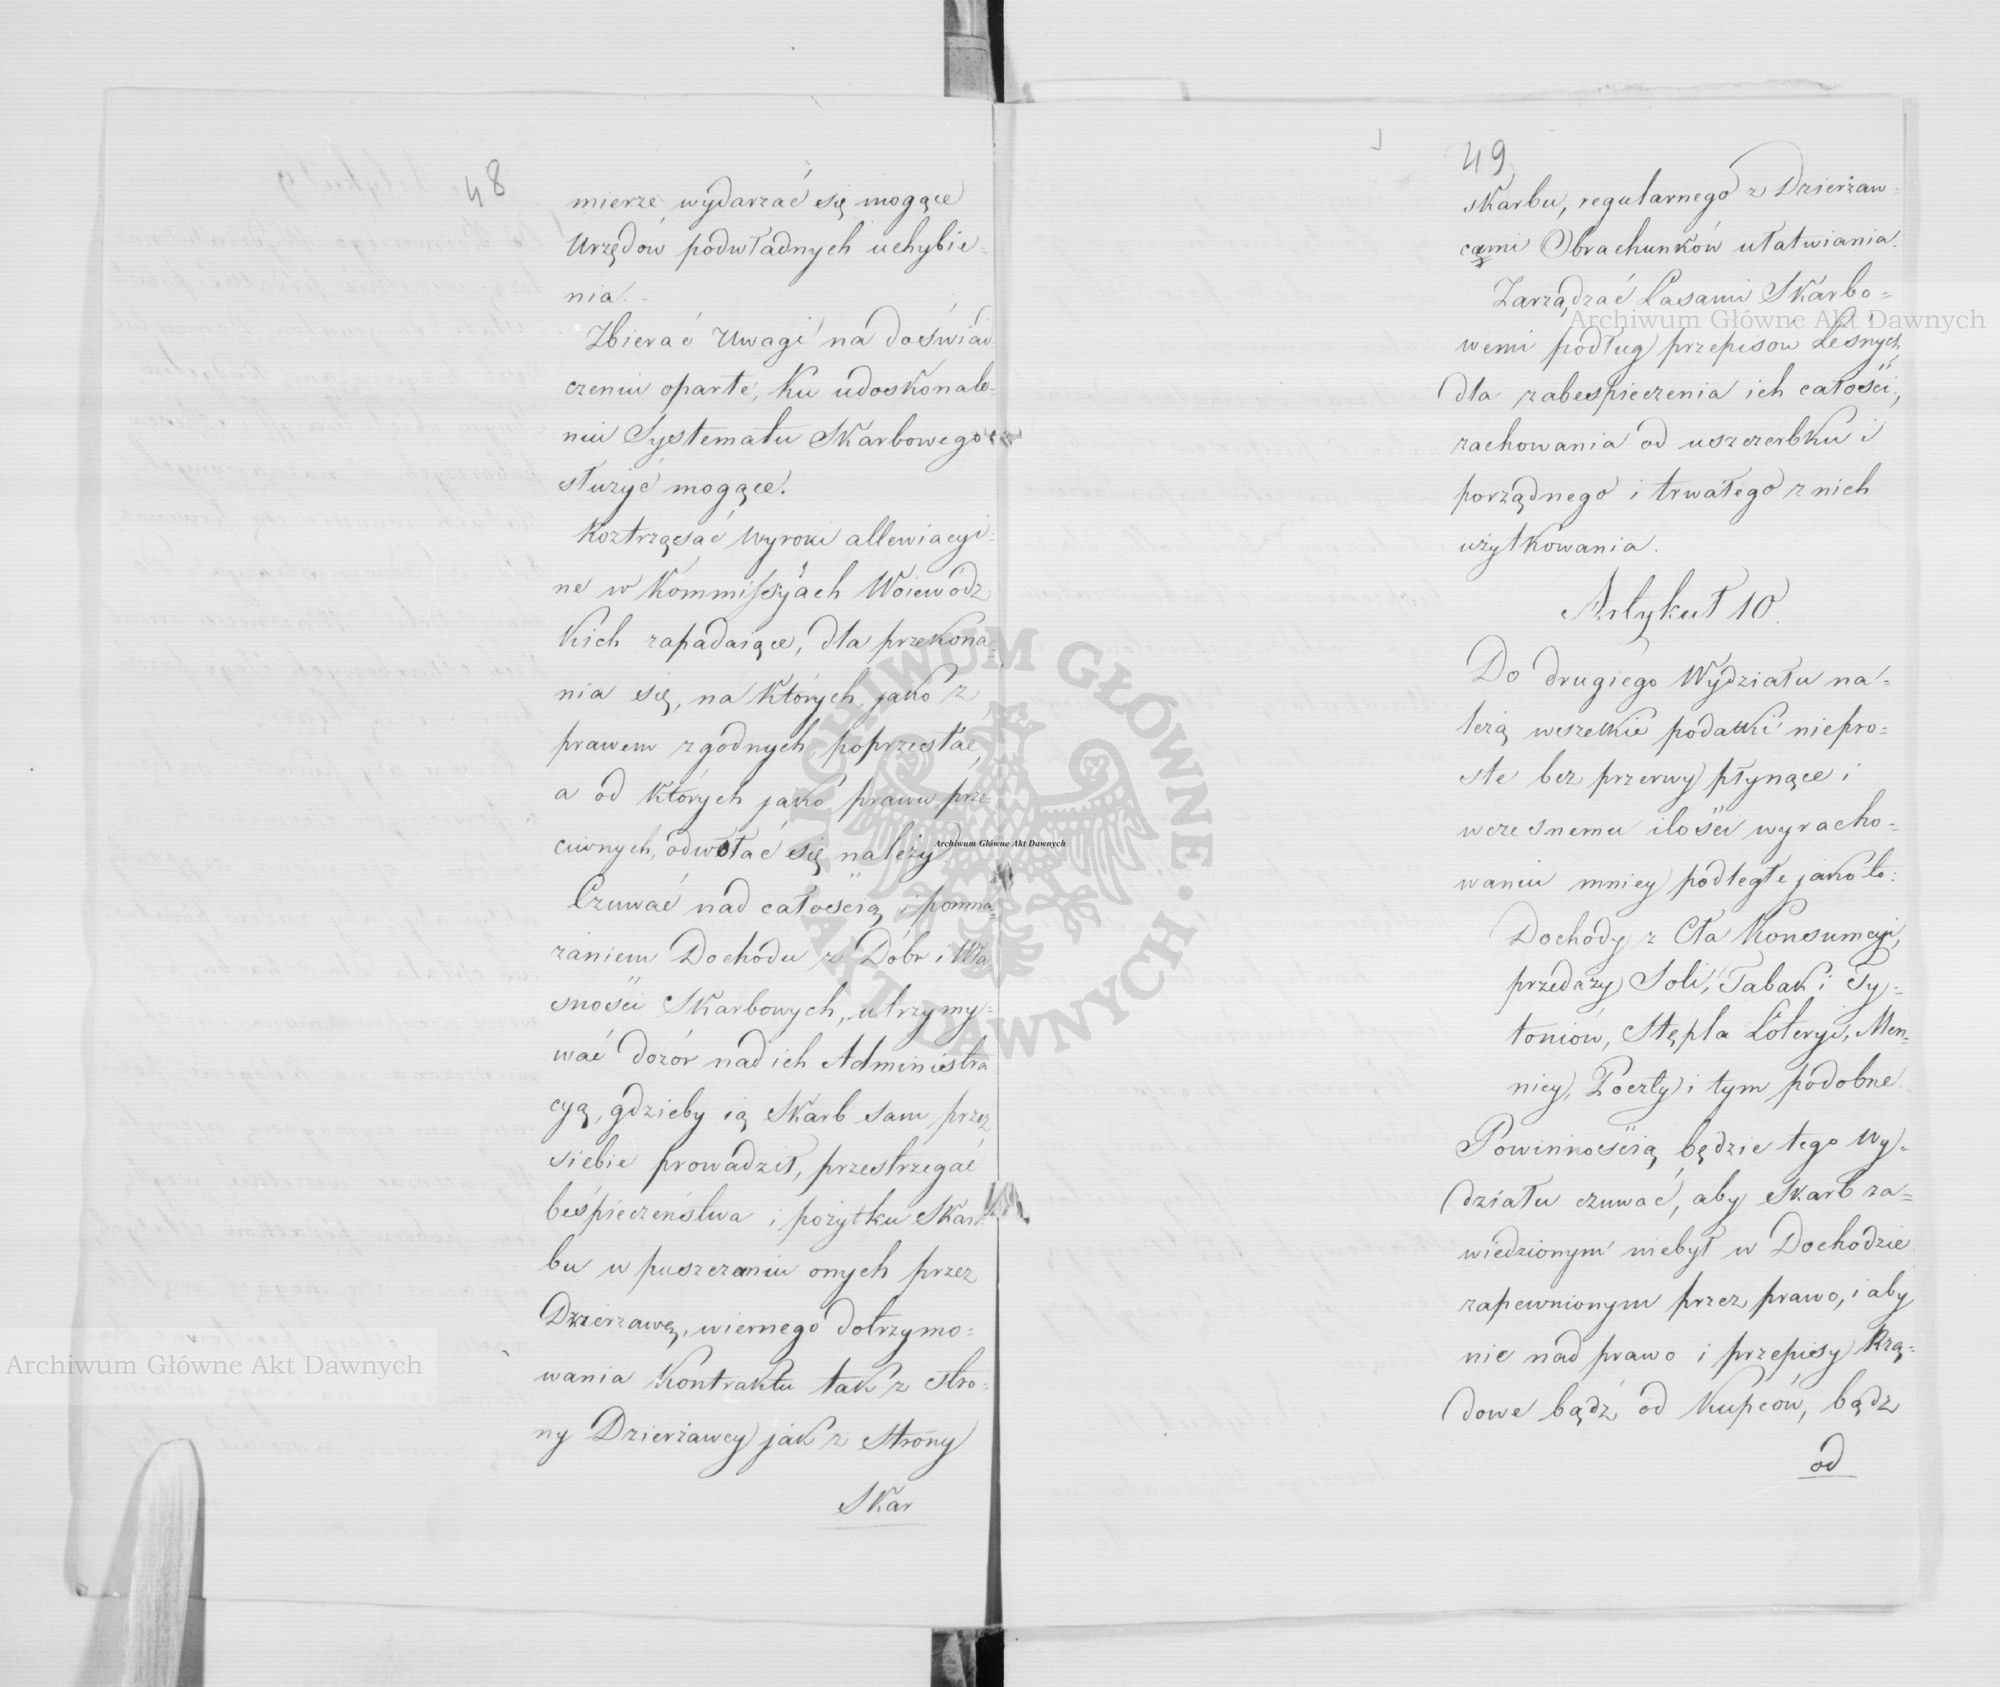 48
mierze wydarzać się mogące
Urzędów podwładnych uchybie=
nia.
Zbierać Uwagi na doświad
czeniu oparte, ku udoskonale=
niu Systematu Skarbowego
służyć mogące.
Roztrząsać Wyroki allewiacyi=
ne w Kommissyach Woiewódz
kich zapadaiące, dla przekona=
nia się, na których jako z
prawem zgodnych, poprzestać,
a od których jako prawu prze=
ciwnych, odwołać się należy.
Czuwać nad całością i pomna=
żaniem Dochodu z Dóbr i Wła=
sności Skarbowych, utrzymy=
wać dozór nad ich Administra
cyą, gdzieby ią Skarb sam przez
siebie prowadził, przestrzegać
beśpieczeństwa i pożytku Skar=
bu w puszczaniu onych przez
Dzierżawę, wiernego dotrzymo=
wania Kontraktu tak z stro=
ny Dzierżawcy jak z Strony
Skar
49
skarbu, regularnego z Dzierżaw=
cami Obrachunków ułatwiania.
Zarządzać Lasami Skarbo=
wemi podług przepisów Leśnych
dla zabespieczenia ich całości,
zachowania od uszczerbku i
porządnego i trwałego z nich
użytkowania.
Artykuł 10.
Do drugiego Wydziału na=
leżą wszelkie podatki niepro=
ste bez przerwy płynące i
wczesnemu ilości wyracho=
waniu mniey podległe jako to:
Dochody z Cła Konsumcyi,
przedaży Soli, Tabak i Ty=
toniów, Stępla Loteryi, Men=
nicy, Poczty i tym podobne.
Powinnością będzie tego Wy=
działu czuwać, aby Skarb za=
wiedzionym niebył w Dochodzie
zapewnionym przez prawo, i aby
nic nad prawo i przepisy Rzą=
dowe bądź od Kupców, bądz
od
Archiwum Główne Akt Dawnych
Archiwum Główne Akt Dawnych
ARCHIWUM GŁÓWNE AKT DAWNYCH
Archiwum Główne Akt Dawnych